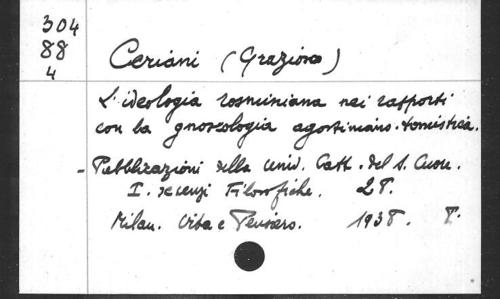 304
88
4
Ceriani (Grazioso)
L'ideologia rosminiana nei rapporti
con la gnoseologia agostiniano-tomistica.
- Pubblicazioni della Univ. Catt. del S. Cuore.
I. Scienze Filosofiche. 28.
Milan. Vita e Pensiero. 1938. 8.